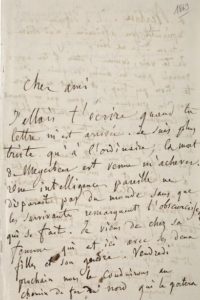 Cher ami
J'allais t'écrire quand ta
lettre m'est arrivée. Je suis plus
triste qu'à l'ordinaire, la mort
de Meyerbeer est venue m'achever.
Une intelligence pareille ne
disparaît pas du monde sans que
les survivants remarquent l'obscurcissement
qui se fait. Je viens de chez sa
femme qui est ici avec les deux
filles et son gendre. Vendredi
prochain nous le conduirons au
chemin de fer du nord qui le portera